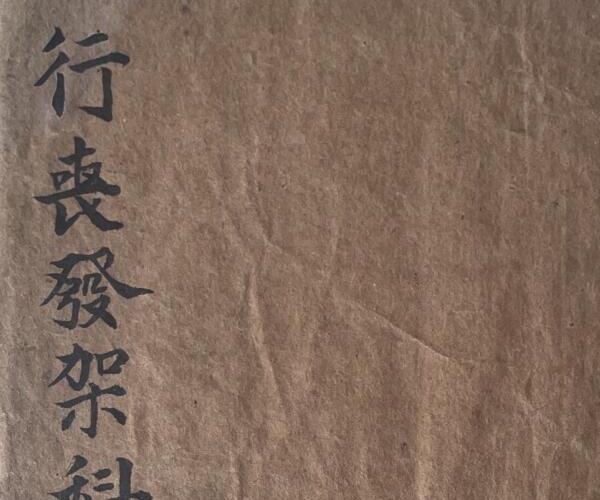 行喪發架科